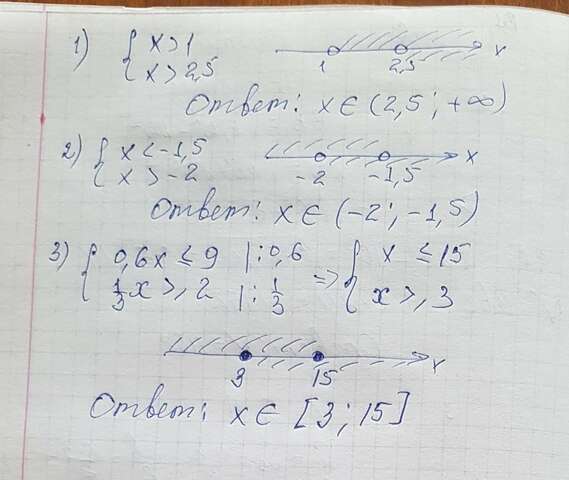 1) { x > 1
x > 2,5
1 2,5 x
Ответ: x ∈ (2,5 ; +∞)
2) { x < -1,5
x > -2
-2 -1,5 x
Ответ: x ∈ (-2 ; -1,5)
3) { 0,6x ≤ 9 |: 0,6 => { x ≤ 15
1/3 x ≥ 2 |: 1/3 x ≥ 3
3 15 x
Ответ: x ∈ [3 ; 15]